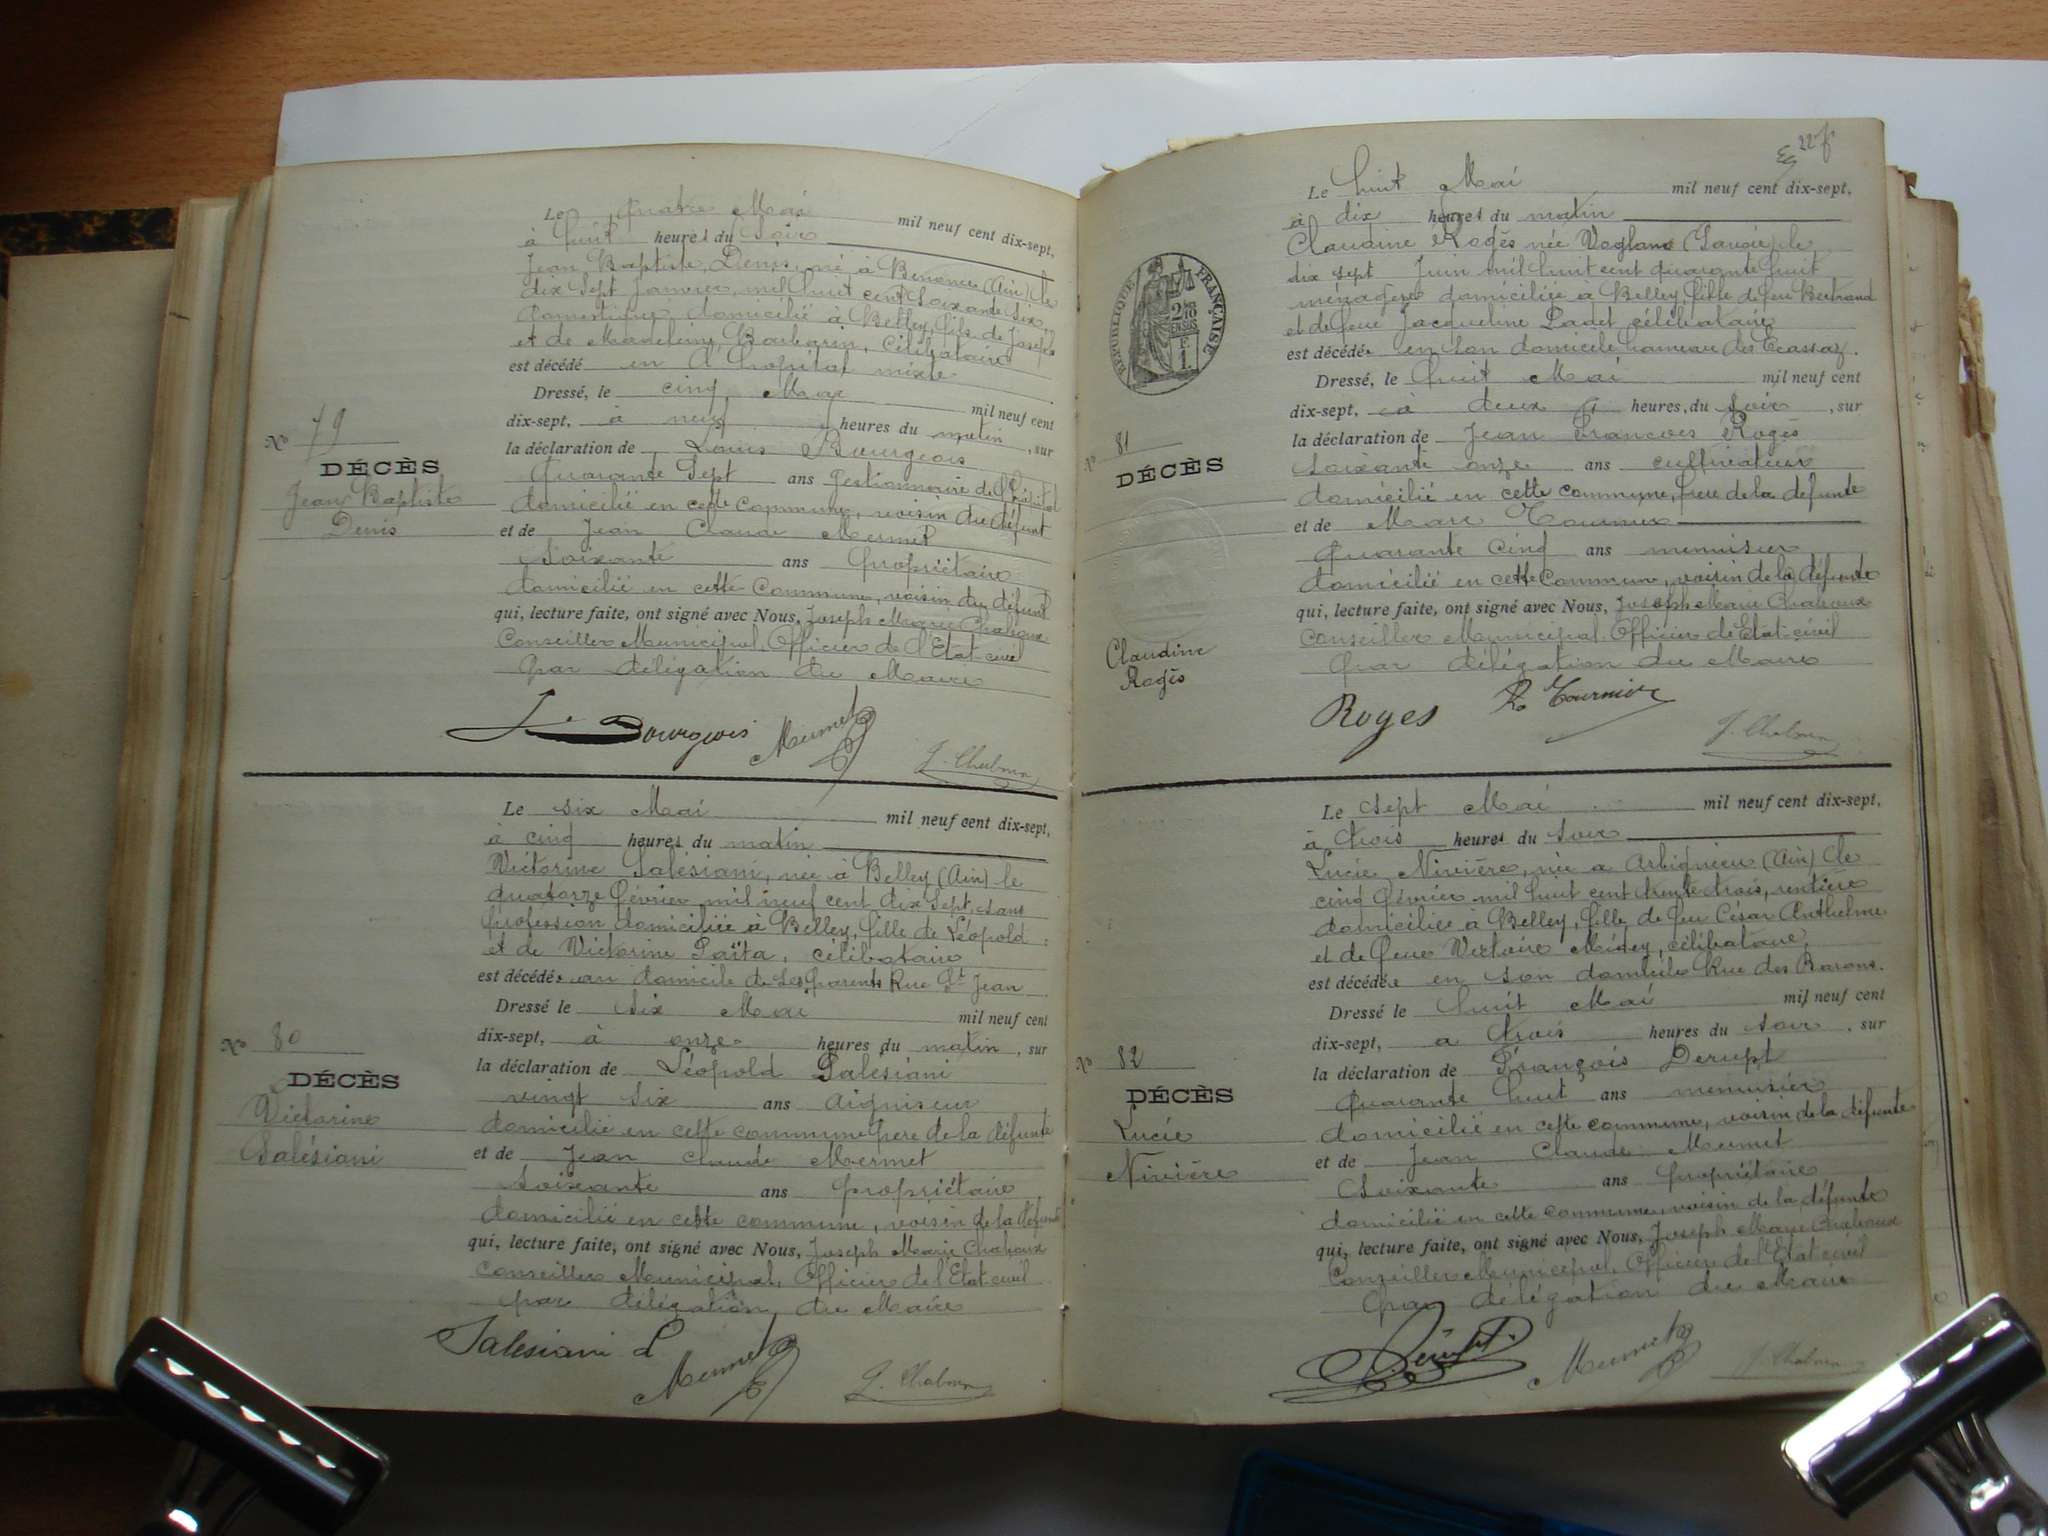 Le quatre Mai mil neuf cent dix-sept,
à huit heures du soir
Jean Baptiste Denis, né à Benonces (Ain) le
dix sept Janvier mil huit cent soixante six,
domestique domicilié à Belley, fils de Joseph
et de Madeleine Barbarin, célibataire
est décédé en l'hopital mixte
Dressé, le cinq Mai mil neuf cent
dix-sept, à neuf heures du matin, sur
la déclaration de Louis Bourgeois
quarante sept ans gestionnaire de l'hôpital
domicilié en cette commune, voisin du défunt
et de Jean Claude Mermet
soixante ans propriétaire
domicilié en cette commune, voisin du défunt
qui, lecture faite, ont signé avec Nous, Joseph Marie Chaboux
Conseiller Municipal, Officier de l'Etat civil
par délégation du Maire
No 79
DÉCÈS
Jean Baptiste
Denis
Bourgeois Mermet J. Chaboux
Le six Mai mil neuf cent dix-sept,
à cinq heures du matin
Victorine Salésiani, née à Belley (Ain) le
quatorze février mil neuf cent dix sept, sans
profession domiciliée à Belley, fille de Léopold
et de Victorine Païta, célibataire
est décédée au domicile de ses parents Rue St Jean
Dressé le six Mai mil neuf cent
dix-sept, à onze heures du matin, sur
la déclaration de Léopold Salésiani
vingt six ans aiguiseur
domicilié en cette commune père de la défunte
et de Jean Claude Mermet
soixante ans propriétaire
domicilié en cette commune, voisin de la défunte
qui, lecture faite, ont signé avec Nous, Joseph Marie Chaboux
Conseiller Municipal, Officier de l'Etat civil
par délégation du Maire
No 80
DÉCÈS
Victorine
Salésiani
Salesiani L Mermet J. Chaboux
22
Le huit Mai mil neuf cent dix-sept,
à dix heures du matin
Claudine Rogès née Voglans (Savoie) le
dix sept Juin mil huit cent quarante huit
ménagère domiciliée à Belley, fille de feu Bertrand
et de feue Jacqueline Padet célibataire
est décédée en son domicile hameau des Ecassaz.
Dressé, le huit Mai mil neuf cent
dix-sept, à deux heures, du soir, sur
la déclaration de Jean François Rogès
soixante onze ans cultivateur
domicilié en cette commune, frère de la défunte
et de Marc Tournier
quarante cinq ans menuisier
domicilié en cette commune, voisin de la défunte
qui, lecture faite, ont signé avec Nous, Joseph Marie Chaboux
Conseiller Municipal, Officier de Etat-civil
par délégation du Maire
RÉPUBLIQUE FRANÇAISE
No 81
DÉCÈS
Claudine
Rogès
Royes Tournier J. Chaboux
Le sept Mai mil neuf cent dix-sept,
à trois heures du soir
Lucie Nivière, née a Arbignieu (Ain) le
cinq février mil huit cent trente trois, rentière
domiciliée à Belley, fille de feu César Anthelme
et de feue Victoire célibataire,
est décédée en son domicile Rue des Barons.
Dressé le huit Mai mil neuf cent
dix-sept, a trois heures du soir, sur
la déclaration de François Derupt
quarante huit ans menuisier
domicilié en cette commune, voisin de la défunte
et de Jean Claude Mermet
soixante ans propriétaire
domicilié en cette commune, voisin de la défunte
qui, lecture faite, ont signé avec Nous, Joseph Marie Chaboux
Conseiller Municipal, Officier de l'Etat civil
par délégation du Maire
No 82
DÉCÈS
Lucie
Nivière
Mermet J. Chaboux